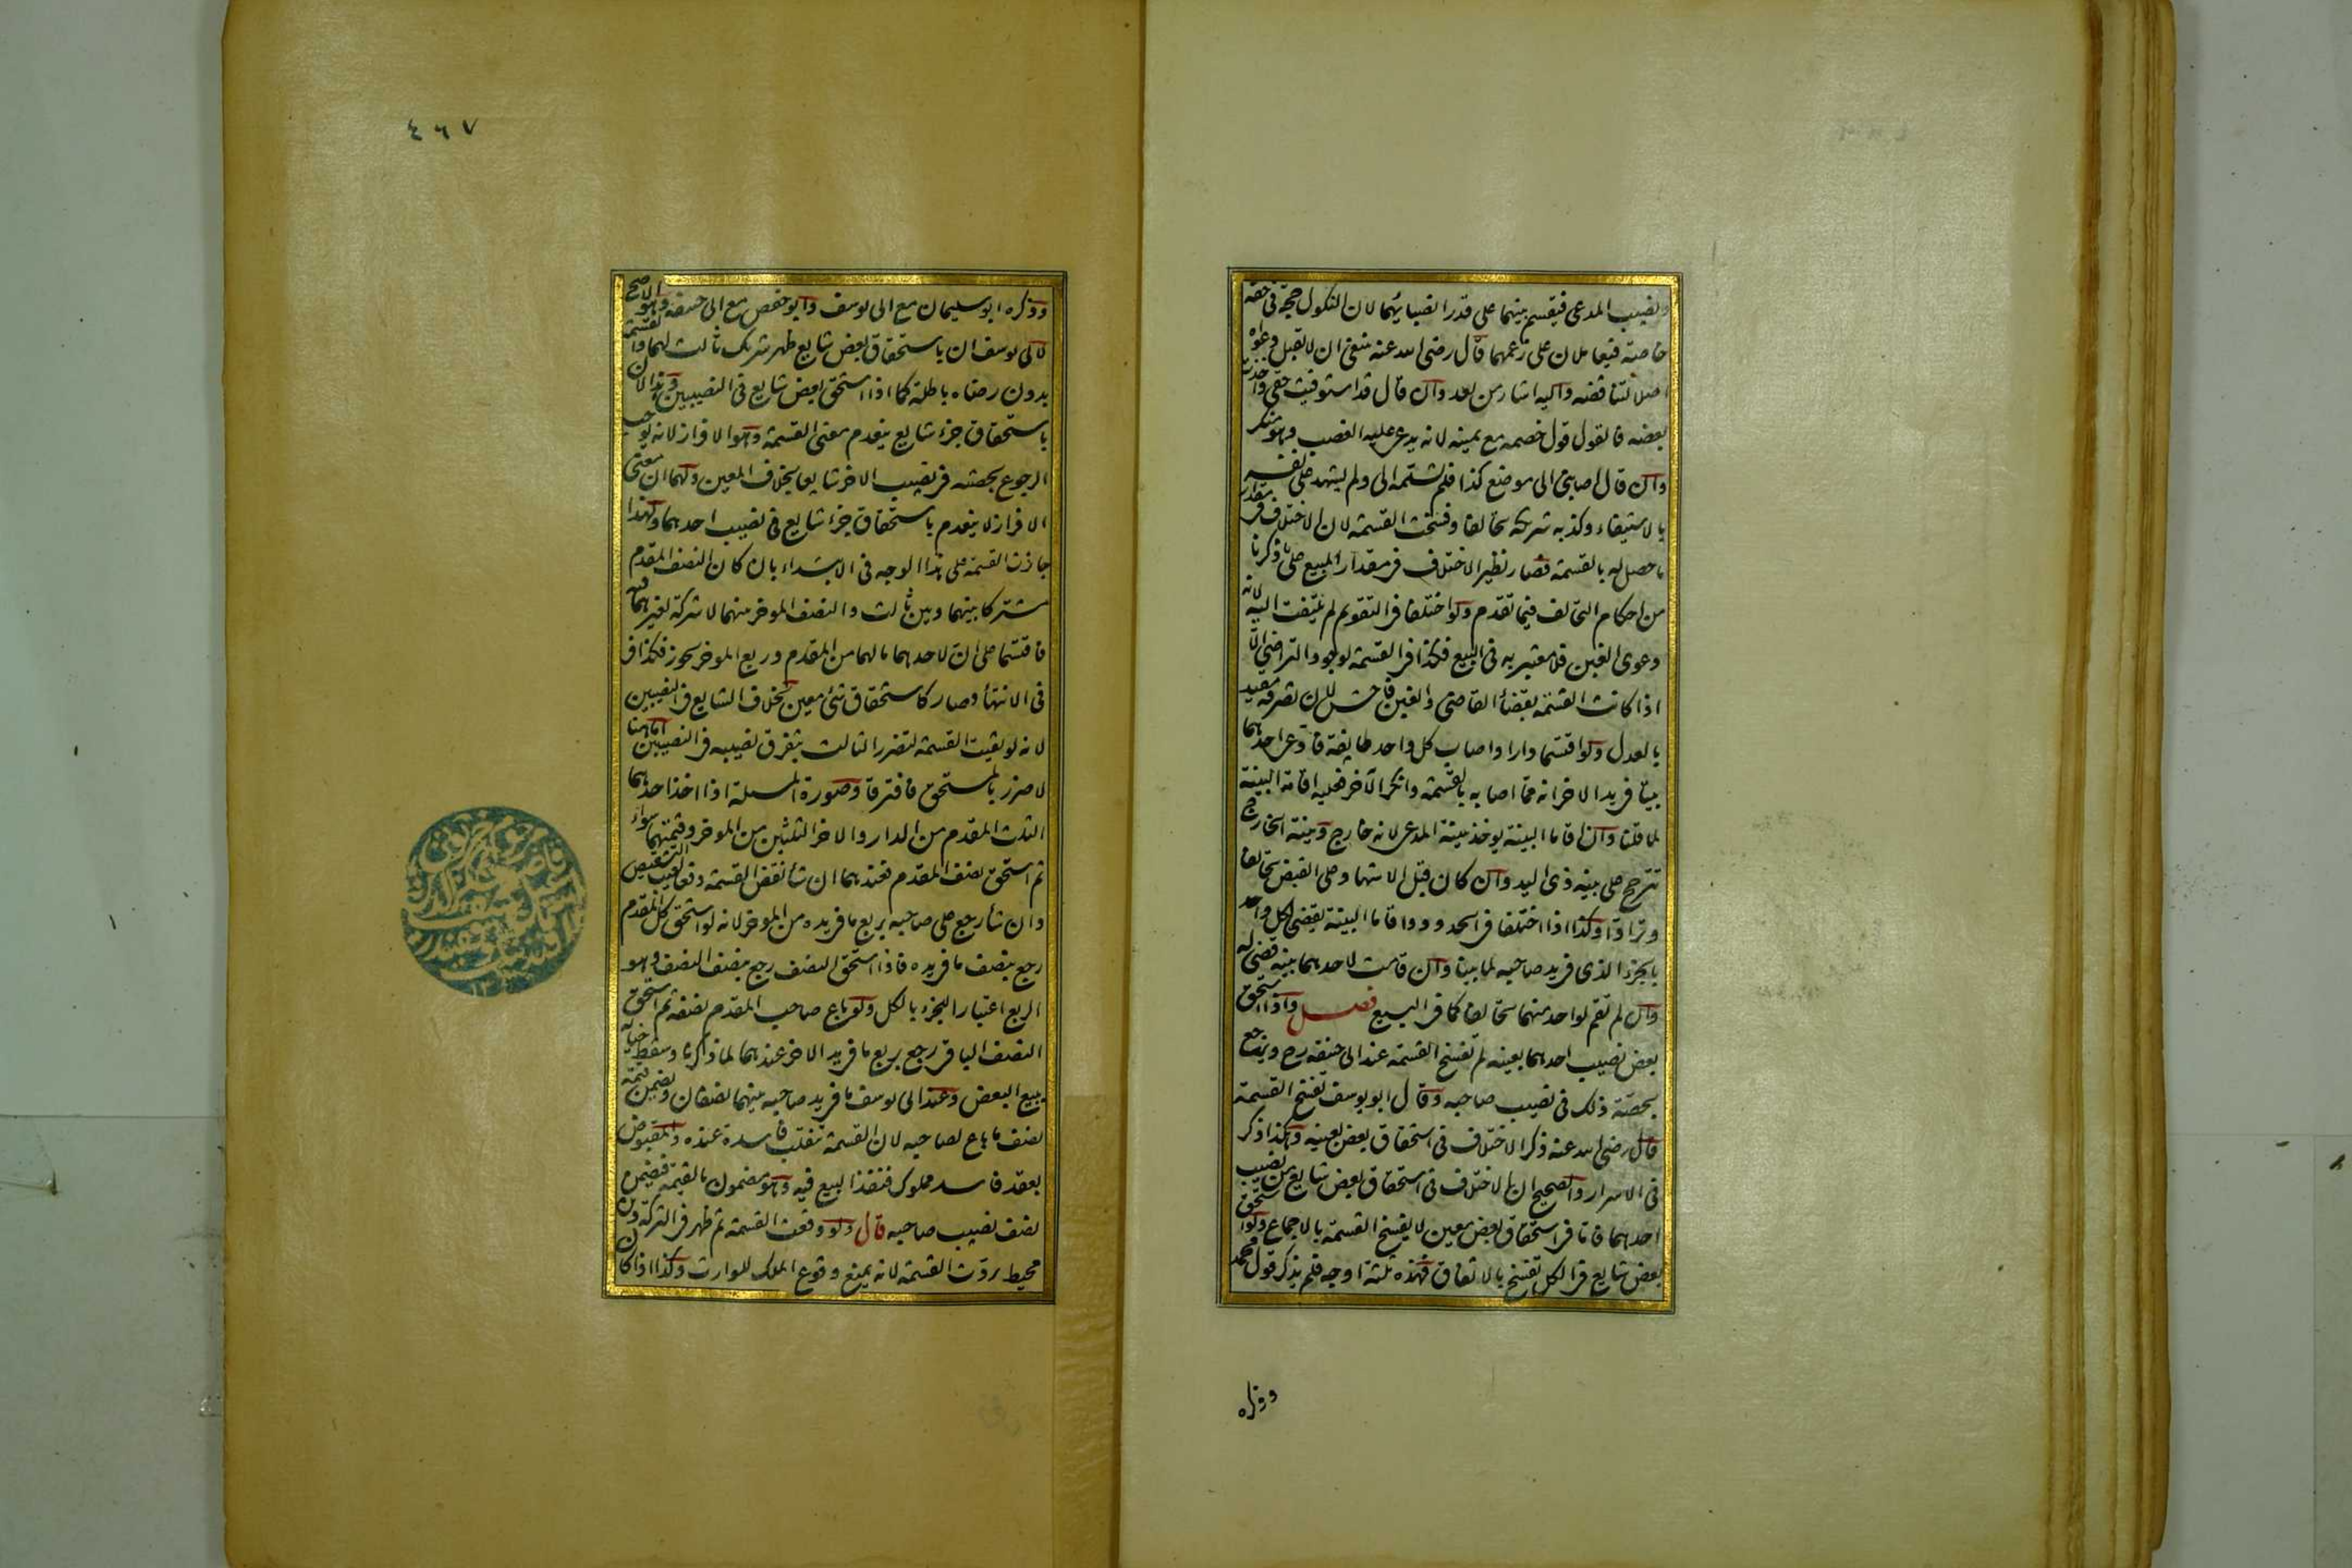 ونصيب المدعى فيقسم بينهما على قدر انصبائهما لان النكول حجة فى حقه
خاصة فيعاملان على زعمهما قال رضى الله عنه ينبغى ان لا تقبل دعواه
اصلا لتناقضه واليه اشار من بعد وان قال قد استوفيت حقى واخذت
بعضه فالقول قول خصمه مع يمينه لانه يدعى عليه الغصب وهو منكر
وان قال اصابنى الى موضع كذا فلم يسلمه الى ولم يشهد على نفسه
بالاستيفاء وكذبه شريكه تحالفا وفسخت القسمة لان الاختلاف فى مقدار
ما حصل له بالقسمة فصار نظير الاختلاف فى مقدار المبيع على ما ذكرنا
من احكام التحالف فيما تقدم ولو اختلفا فى التقويم لم يلتفت اليه لانه
دعوى الغبن فلا معتبر به فى البيع فكذا فى القسمة لوجود التراضى الا
اذا كانت القسمة بقضأ القاضى والغبن فاحش لان تصرفه مقيد
بالعدل ولو اقتسما دارا واصاب كل واحد طايفة فادعى احدهما
بيتا فى يد الاخر انه مما اصابه بالقسمة وانكر الآخر فعليه اقامة البينة
لما قلنا وان اقاما البينة يوخذ ببينة المدعى لانه خارج وبينة الخارج
تترجح على بينه ذى اليد وان كان قبل الاشهاد على القبض تحالفا
وترادا وكذا اذا اختلفا فى الحدود واقاما البينة يقضى لكل واحد
بالجزء الذى فى يد صاحبه لما بينا وان قامت لاحدهما بينه قضى له
وان لم تقم لواحد منهما تحالفا كما فى البيع فصل واذا استحق
بعض نصيب احدهما بعينه لم تفسخ القسمة عند ابى حنيفه رح ويرجع
بحصّة ذلك فى نصيب صاحبه وقال ابو يوسف تفسخ القسمة
قال رضى الله عنه ذكر الاختلاف فى استحقاق بعض بعينه وهكذا ذكر
فى الاسرار والصحيح ان الاختلاف فى استحقاق بعض شايع من نصيب
احدهما فاما فى استحقاق بعض معين لا يفسخ القسمة بالاجماع ولو استحق
بعض شايع فى الكل تفسخ بالاتفاق فهذه ثلثة اوجه فلم يذكر قول محمد
وذكره
٤٦٧
وذكره ابو سليمان مع ابى يوسف وابو حفص مع ابى حنيفه وهو الاصح
لابى يوسف ان باستحقاق بعض شايع ظهر شريك ثالث لهما والقسمة
بدون رضاه باطلة كما اذا استحق بعض شايع فى النصيبين وهذا لان
باستحقاق جزء شايع ينعدم معنى القسمة وهو الافراز لانه يوجب
الرجوع بحصته فى نصيب الاخر شايعا بخلاف المعين ولهما ان معنى
الافراز لا ينعدم باستحقاق جزء شايع فى نصيب احدهما ولهذا
جازت القسمة على هذا الوجه فى الابتداء بان كان النصف المقدم
مشتركا بينهما وبين ثالث والنصف الموخر بينهما لا شركة لغيرهما فيه
فاقتسما على ان لاحدهما ما لهما من المقدم وربع الموخر يجوز فكذا
فى الانتهأ وصار كاستحقاق شئ معين بخلاف الشايع فى النصيبين
لانه لو بقيت القسمة لتضرر الثالث بتفرق نصيبه فى النصيبين اما ههنا
لا ضرر بالمستحق فافترقا وصورة المسئلة اذا اخذ احدهما
الثلث المقدم من الدار والاخر الثلثين من الموخر وقيمتهما سواء
ثم استحق نصف المقدم فعندهما ان شأ نقض القسمة دفعا لعيب التشقيص
وان شأ رجع على صاحبه بربع ما فى يده من الموخر لانه لو استحق كل المقدم
رجع بنصف ما فى يده فاذا استحق النصف رجع بنصف النصف وهو
الربع اعتبارا للجزء بالكل ولو باع صاحب المقدم نصفه ثم استحق
النصف الباقى رجع بربع ما فى يد الاخر عندهما لما ذكرنا وسقط خياره
ببيع البعض وعند ابى يوسف ما فى يد صاحبه بينهما نصفان ويضمن قيمة
نصف ما باع لصاحبه لان القسمة تنقلب فاسدة عنده والمقبوض
بعقد فاسد مملوك فنفذ البيع فيه وهو مضمون بالقيمة فيضمن
نصف نصيب صاحبه قال ولو وقعت القسمة ثم ظهر فى التركة دين
محيط ردت القسمة لانه يمنع وقوع الملك للوارث وكذا اذا كان